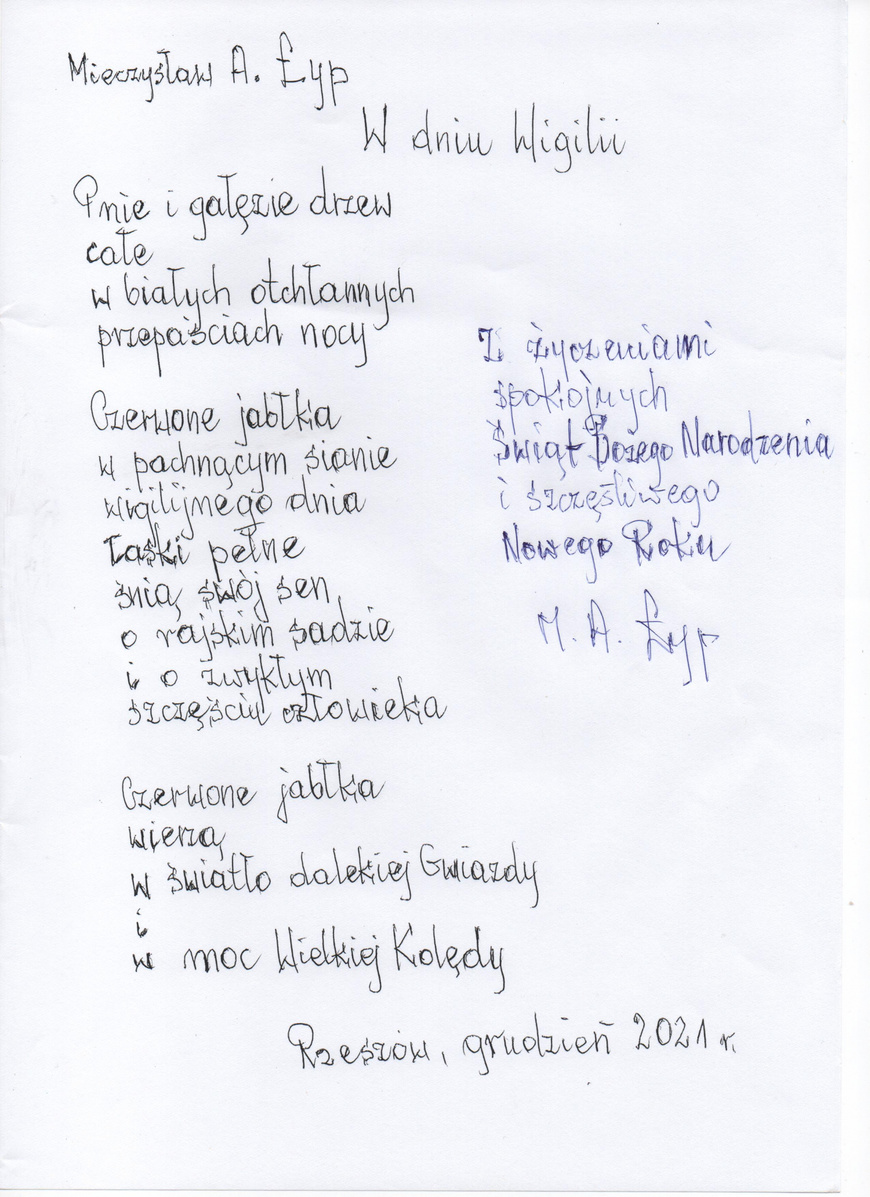 Mieczysław A. Łyp
W dniu Wigilii
Pnie i gałęzie drzew
całe
w białych otchłannych
przepaściach nocy
Czerwone jabłka
w pachnącym sianie
wigilijnego dnia
łaski pełne
śnią swój sen
o rajskim sadzie
i o zwykłym
szczęściu człowieka
Czerwone jabłka
wierzą
w światło dalekiej Gwiazdy
i
w moc Wielkiej Kolędy
Z życzeniami
spokojnych
Świąt Bożego Narodzenia
i szczęśliwego
Nowego Roku
M. A. Łyp
Rzeszów, grudzień 2021 r.